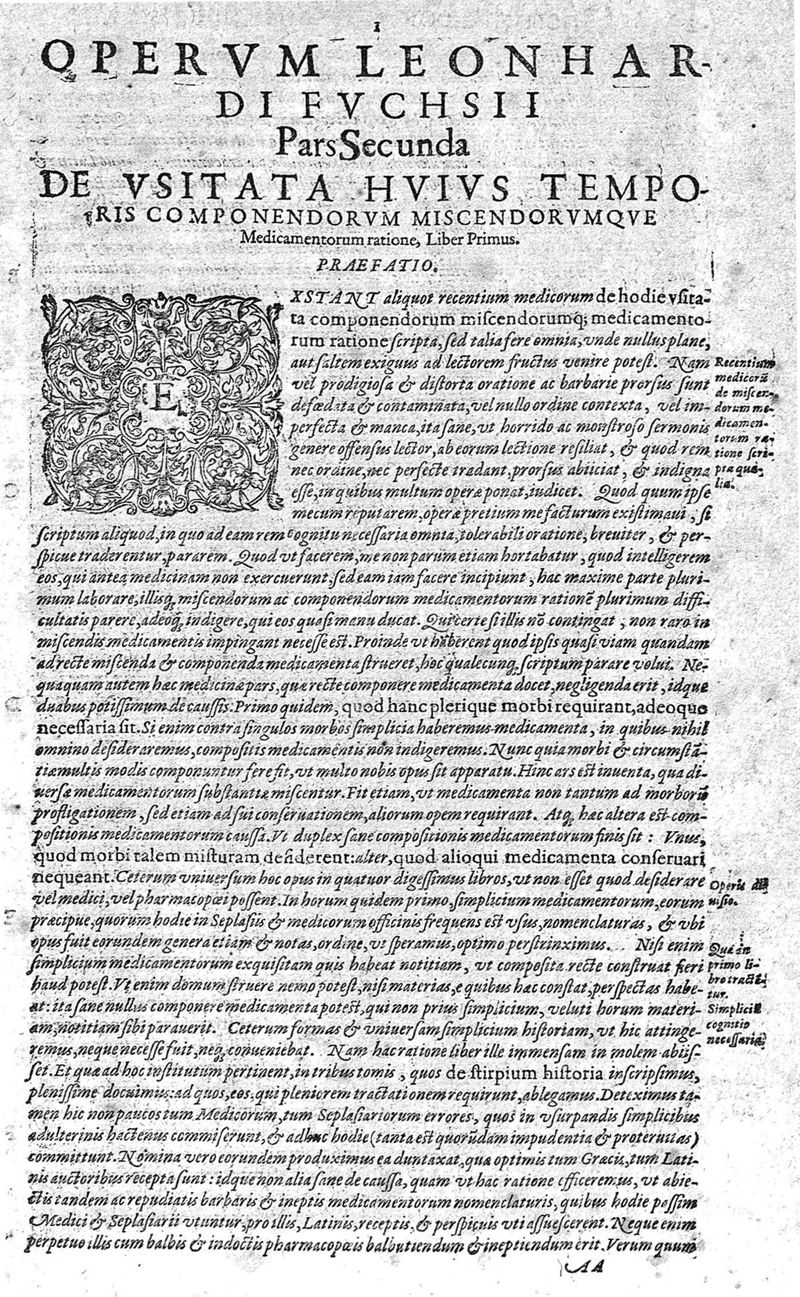 1
OPERVM LEONHAR-
DI FVCHSII
Pars Secunda
DE VSITATA HVIVS TEMPO-
RIS COMPONENDORVM MISCENDORVMQVE
Medicamentorum ratione, Liber Primus.
PRAEFATIO.
EXSTANT aliquot recentium medicorum de hodie vsita-
ta componendorum miscendorumq; medicamento-
rum ratione scripta, sed talia fere omnia, vnde nullus plane,
aut saltem exiguus ad lectorem fructus venire potest. Nam
vel prodigiosa & distorta oratione ac barbarie prorsus sunt
defœdata & contaminata, vel nullo ordine contexta, vel im-
perfecta & manca, ita sane, vt horrido ac monstroso sermonis
genere offensus lector, ab eorum lectione resiliat, & quod rem
nec ordine, nec perfecte tradant, prorsus abiiciat, & indigna
esse, in quibus multum operæ ponat, iudicet. Quod quum ipse
mecum reputarem, operæ pretium me facturum existimaui, si
Recentium
medicorū
de miscen-
dorum me-
dicamen-
torum ra-
tione scri-
pta qua-
lia.
scriptum aliquod, in quo ad eam rem cognitu necessaria omnia, tolerabili oratione, breuiter, & per-
spicue traderentur, pararem. Quod vt facerem, me non parum etiam hortabatur, quod intelligerem
eos, qui antea medicinam non exercuerunt, sed eam iam facere incipiunt, hac maxime parte pluri-
mum laborare, illisq; miscendorum ac componendorum medicamentorum rationē plurimum diffi-
cultatis parere, adeoq; indigere, qui eos quasi manu ducat. Qui certe si illis nō contingat, non raro in
miscendis medicamentis impingant necesse est. Proinde vt haberent quod ipsis quasi viam quandam
ad recte miscenda & componenda medicamenta strueret, hoc qualecunq; scriptum parare volui. Ne-
quaquam autem hæc medicinæ pars, quæ recte componere medicamenta docet, negligenda erit, idque
duabus potissimum de caussis. Primo quidem, quod hanc plerique morbi requirant, adeoque
necessaria sit. Si enim contra singulos morbos simplicia haberemus medicamenta, in quibus nihil
omnino desideraremus, compositis medicamentis non indigeremus. Nunc quia morbi & circumstā-
tiæ multis modis componuntur fere fit, vt multo nobis opus sit apparatu. Hinc ars est inuenta, qua di-
uersæ medicamentorum substantiæ miscentur. Fit etiam, vt medicamenta non tantum ad morborū
profligationem, sed etiam ad sui conseruationem, aliorum opem requirant. Atq; hæc altera est com-
positionis medicamentorum caussa. Vt duplex sane compositionis medicamentorum finis sit: Vnus,
quod morbi talem misturam desiderent: alter, quod alioqui medicamenta conseruari
nequeant. Ceterum vniuersum hoc opus in quatuor digessimus libros, vt non esset quod desiderare
vel medici, vel pharmacopœi possent. In horum quidem primo, simplicium medicamentorum, eorum
præcipue, quorum hodie in Seplasiis & medicorum officinis frequens est vsus, nomenclaturas, & vbi
opus fuit eorundem genera etiam & notas, ordine, vt speramus, optimo perstrinximus. Nisi enim
simplicium medicamentorum exquisitam quis habeat notitiam, vt composita recte construat fieri
haud potest. Vt enim domum struere nemo potest, nisi materias, e quibus hæc constat, perspectas habe-
at: ita sane nullus componere medicamenta potest, qui non prius simplicium, veluti horum materi-
am, notitiam sibi parauerit. Ceterum formas & vniuersam simplicium historiam, vt hic attinge-
remus, neque necesse fuit, neq; conueniebat. Nam hac ratione liber ille immensam in molem abiis-
set. Et quæ ad hoc institutum pertinent, in tribus tomis, quos de stirpium historia inscripsimus,
plenissime docuimus: ad quos, eos, qui pleniorem tractationem requirunt, ablegamus. Deteximus ta-
men hic non paucos tum Medicorum, tum Seplasiariorum errores, quos in vsurpandis simplicibus
adulterinis hactenus commiserunt, & adhuc hodie (tanta est quorūdam impudentia & proteruitas)
committunt. Nomina vero eorundem produximus ea duntaxat, quæ optimis tum Græcis, tum Lati-
nis auctoribus recepta sunt: idque non alia sane de caussa, quam vt hac ratione efficeremus, vt abie-
ctis tandem ac repudiatis barbaris & ineptis medicamentorum nomenclaturis, quibus hodie passim
Medici & Seplasiarii vtuntur, pro illis, Latinis, receptis, & perspicuis vti assuescerent. Neque enim
perpetuo illis cum balbis & indoctis pharmacopœis balbutiendum & ineptiendum erit. Verum quum
Operis di-
uisio.
Quæ in
primo li-
bro tractē-
tur.
Simpliciū
cognitio
necessaria.
AA